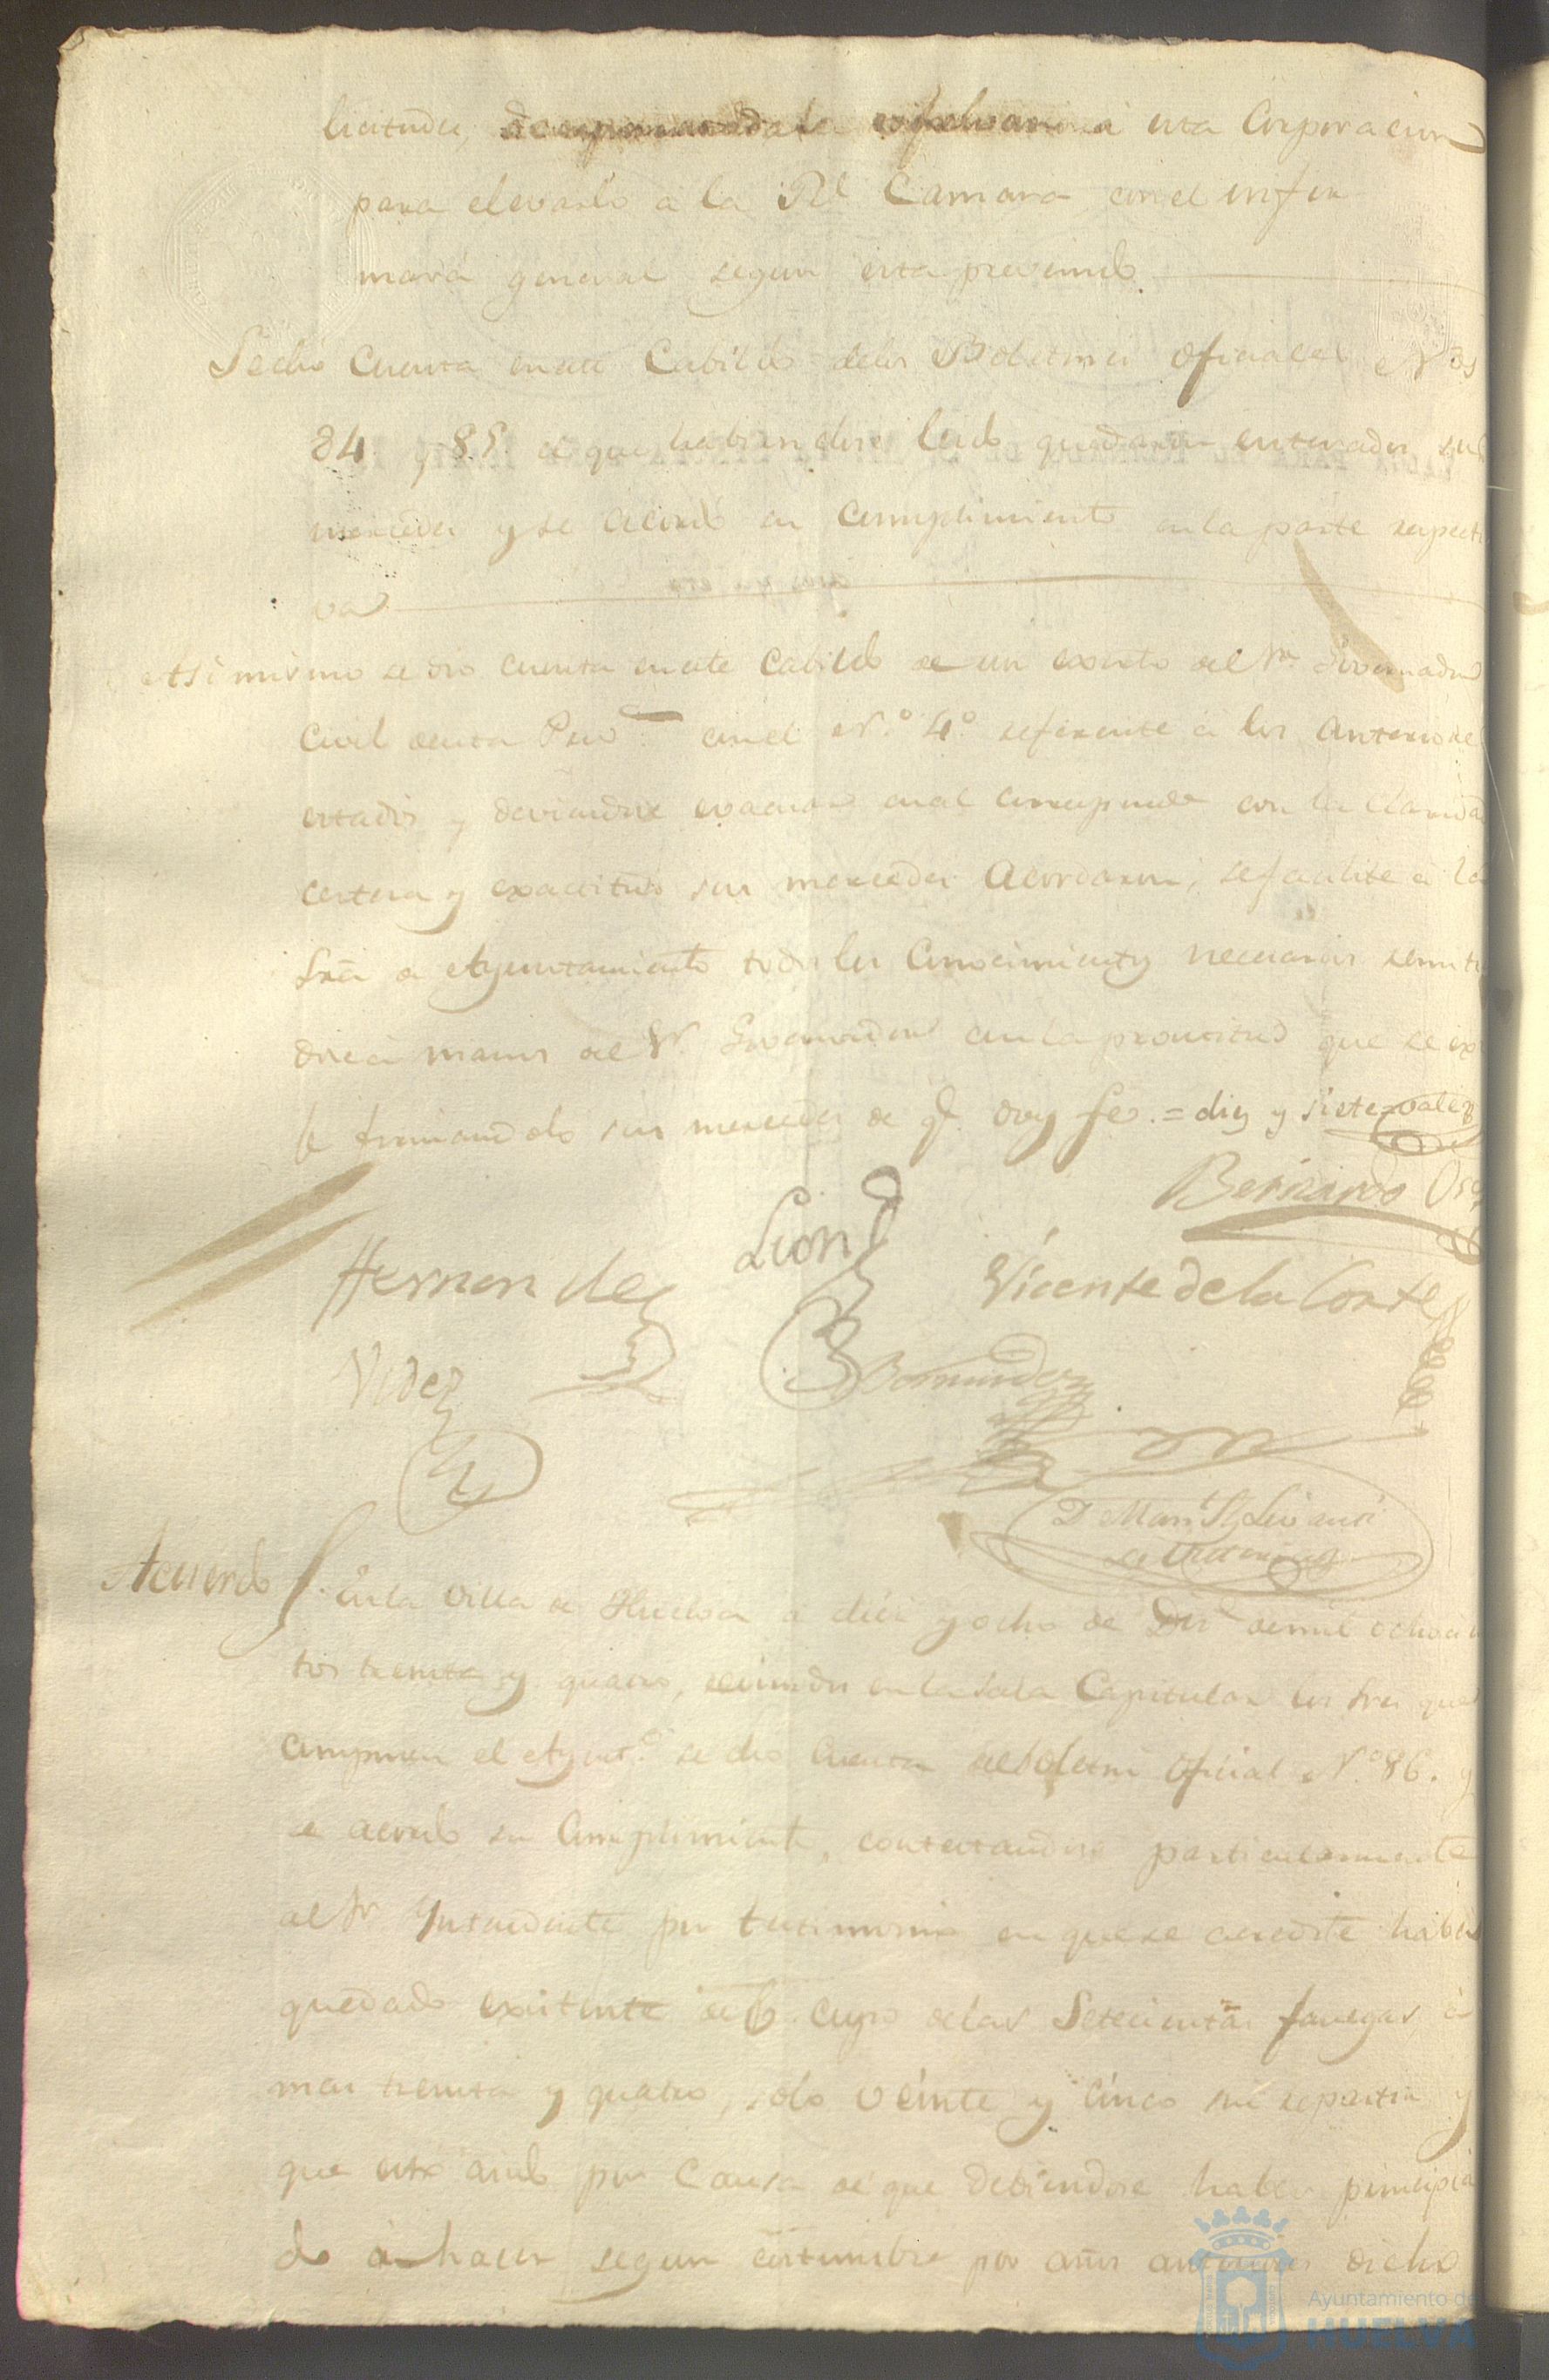 licitudes, esta Corporacion
para elevarlo a la Rl Camara con el infor
mara general segun esta prevenido
Se dio Cuenta en este Cabildo delos Boletines oficiales Nos
84. y 85. de que habiendose leido quedaron enterados sus
mercedes y se acordó su Cumplimiento en la parte respecti
va
Asi mismo se dio cuenta en este Cabildo de un exorto del Sr. Governador
Civil de esta Prova con el N.o 4.o referente a los anteriores
estados y deviendose evacuar cual corresponde con la claridad
certeza y exactitud sus mercedes Acordaron, se facilite a la
Sria de Ayuntamiento todos los Conocimientos necesarios remitien
dose a manos del Sr. Governador con la prontitud que se exi
je firmandolo sus mercedes de q. doy fe. = diez y siete = vale
Bernardo
Leon
Hernandez
Vicente de la Corte
Videz
Bermudez
D. Man.l
Acuerdo
En la Villa de Huelva a diez y ocho de de mil ochocien
tos treinta y quatro, reunidos en la Sala Capitular los Sres que
componen el Ayunt.o se dio Cuenta del Boletin Oficial N.o 86. y
se acordo su Cumplimiento, contestandose particularmente
al Sr Yntendente por testimonio en que se acredite haber
quedado existente del cupo delas Setecientas fanegas, a
mas treinta y quatro, solo veinte y cinco sin repartir y
que esto à sido por Causa de que deviendose haber principia
do à hacer segun costumbre por años anteriores dicho
Ayuntamiento de
HUELVA